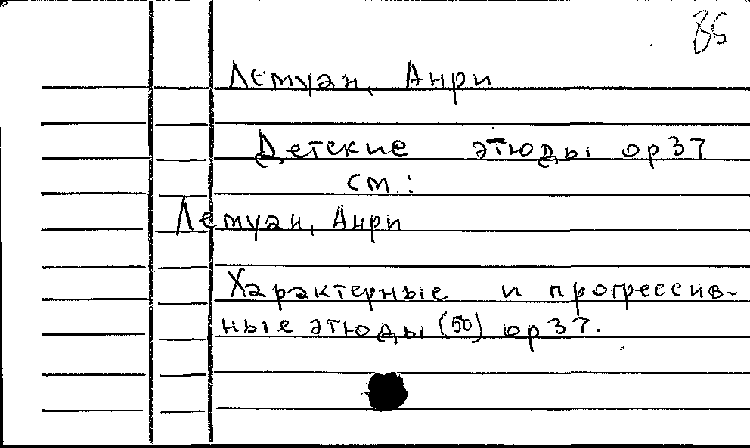 85
Лемуан, Анри
Детские этюды ор37
см:
Лемуан, Анри
Характерные и прогрессив-
ные этюды (50) ор37.